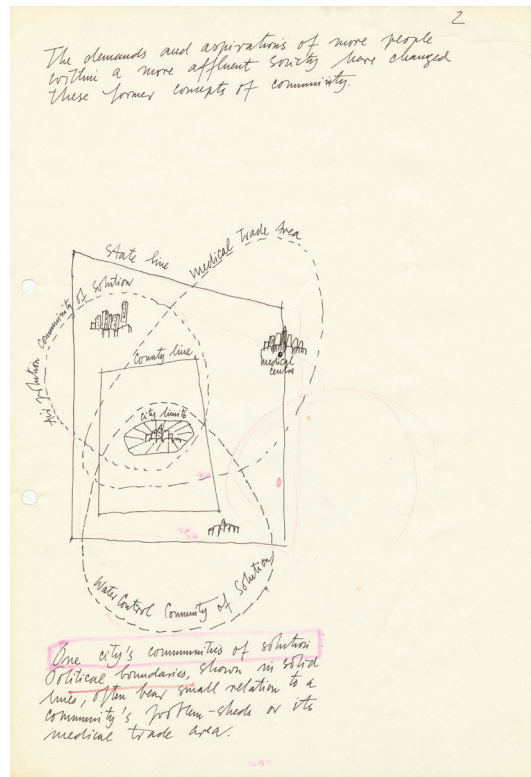 2
The demands and aspirations of more people
within a more affluent society have changed
these former concepts of community.
State line
Medical Trade Area
Air Pollution Community of Solution
County line
medical
centre
city limits
Water Control Community of Solution
One city's communities of solution
Political boundaries, shown in solid
lines, often bear small relation to a
community's problem-sheds or its
medical trade area.